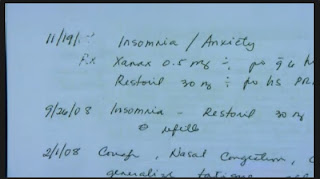 Insomnia / Anxiety
Rx Xanax 0.5 mg ÷ po q 6 h
Restoril 30 mg ÷ po hs PR
9/26/03 Insomnia - Restoril 30 mg
refills
2/1/08 Cough, Nasal Congestion,
generalize fatigue